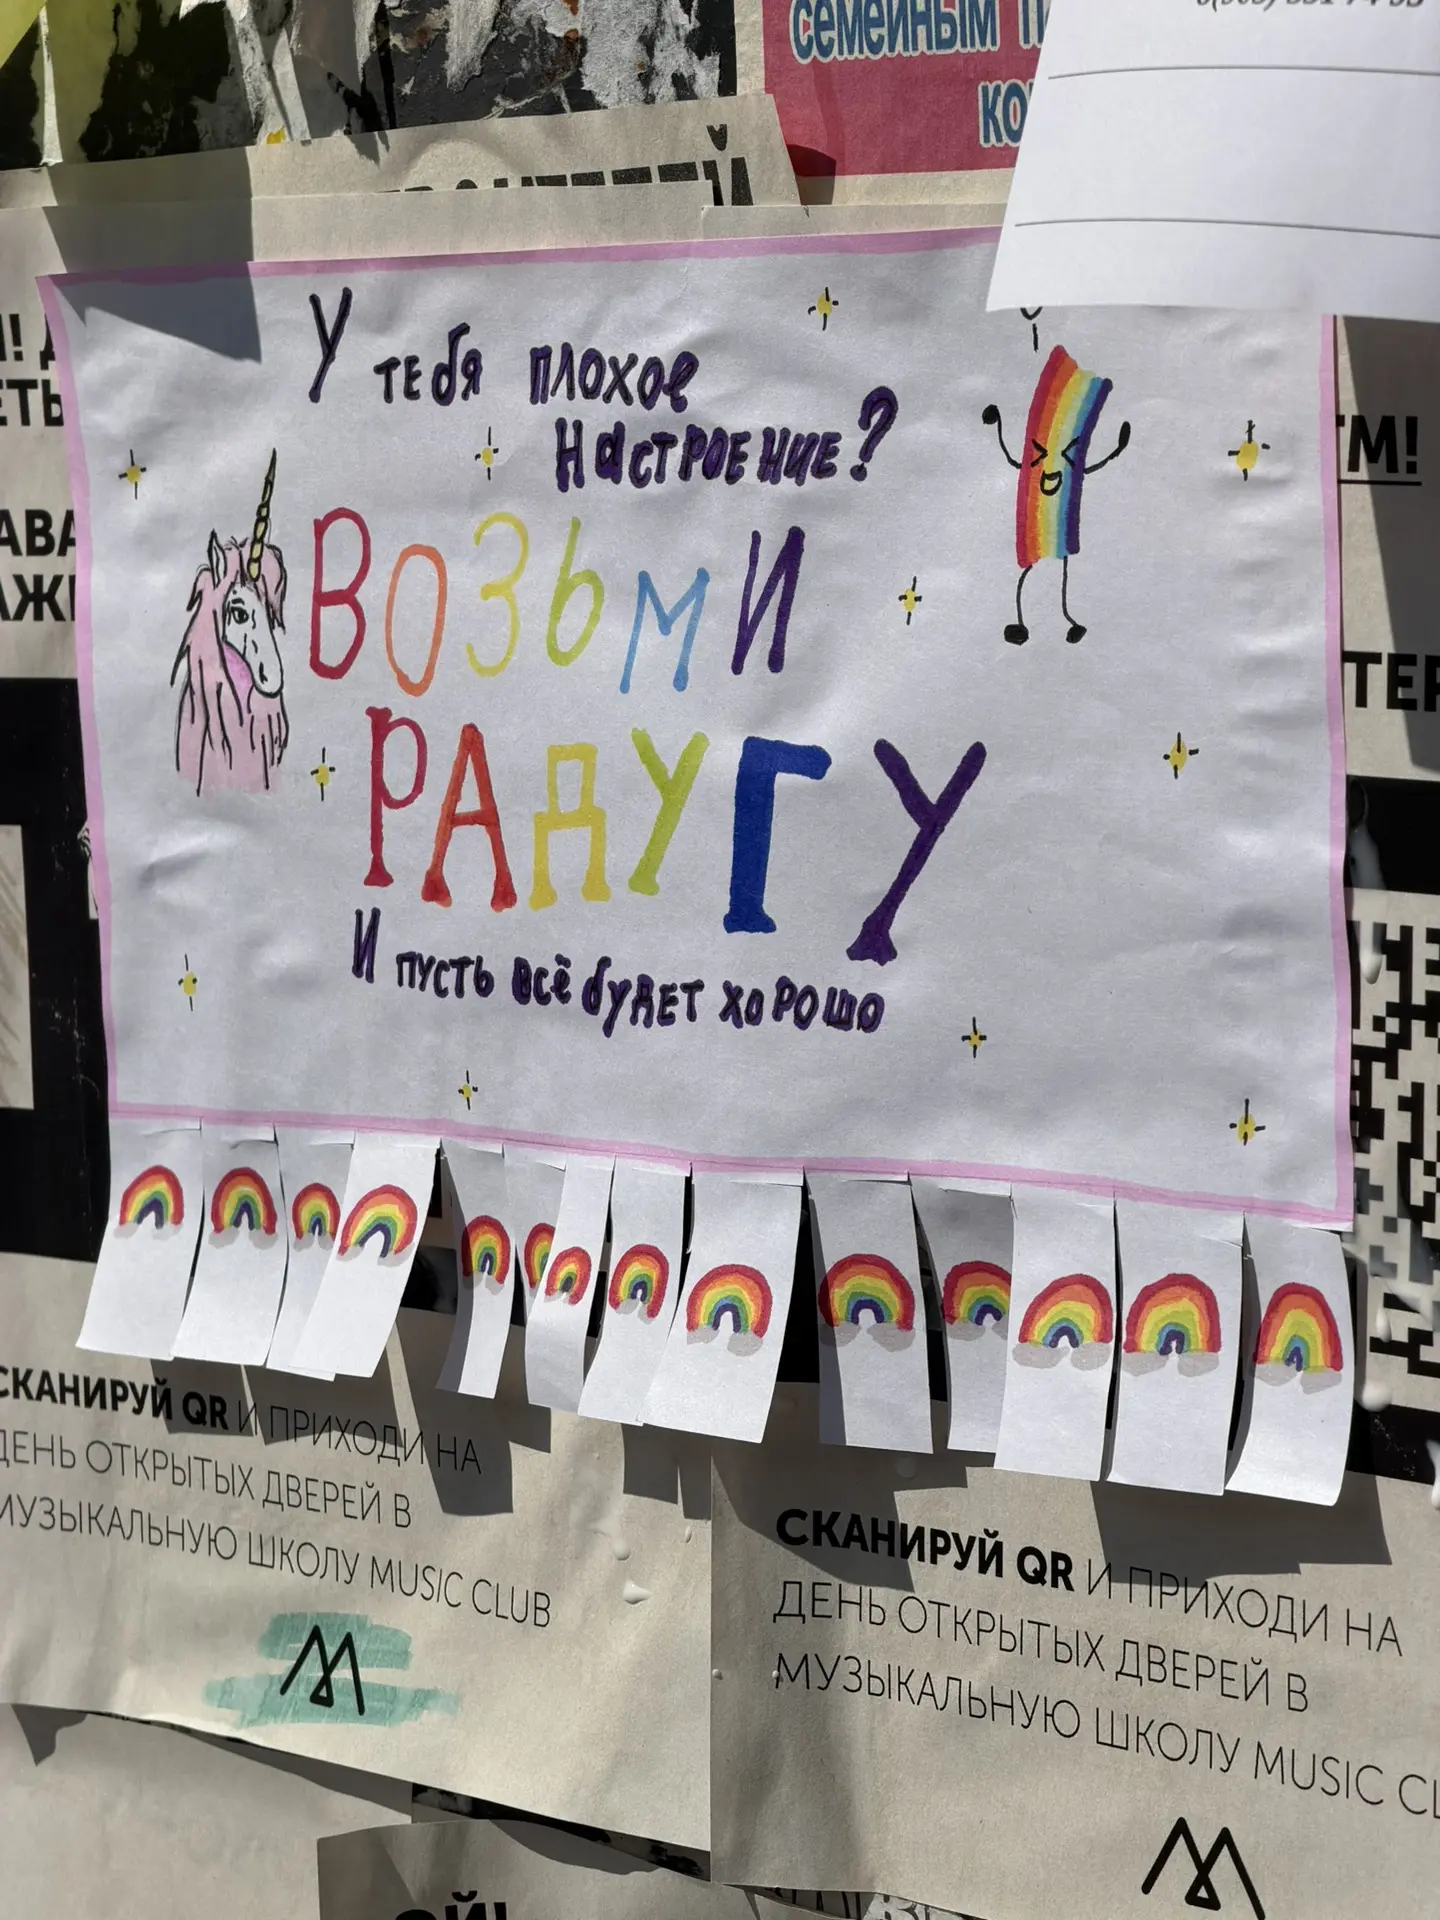 СЕМЕЙНЫМ
У ТЕБЯ ПЛОХОЕ
НАСТРОЕНИЕ?
ВОЗЬМИ
РАДУГУ
И ПУСТЬ ВСЁ БУДЕТ ХОРОШО
СКАНИРУЙ QR И ПРИХОДИ НА
ДЕНЬ ОТКРЫТЫХ ДВЕРЕЙ В
МУЗЫКАЛЬНУЮ ШКОЛУ MUSIC CLUB
СКАНИРУЙ QR И ПРИХОДИ НА
ДЕНЬ ОТКРЫТЫХ ДВЕРЕЙ В
МУЗЫКАЛЬНУЮ ШКОЛУ MUSIC CL